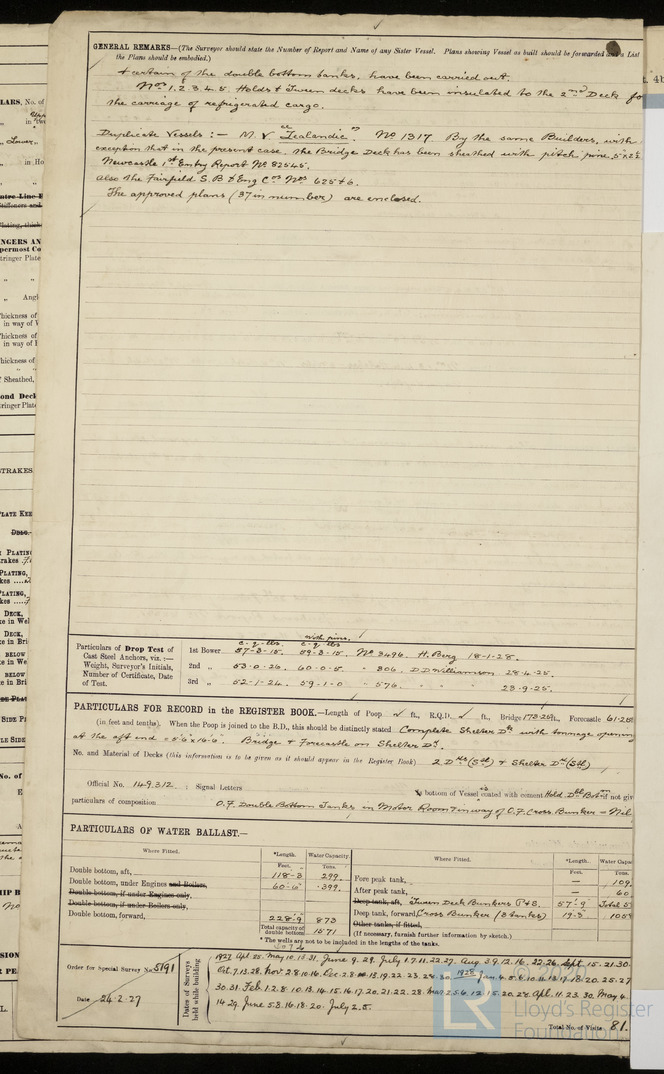 GENERAL REMARKS—(The Surveyor should state the Number of Report and Name of any Sister Vessel. Plans showing Vessel as built should be forwarded and a List
the Plans should be embodied.)
& certain of the double bottom tanks, have been carried out.
Nos 1.2.3.4.5. Holds & Tween decks have been insulated to the 2nd Deck for
the carriage of refrigerated cargo.
Duplicate Vessels :— M.V "Zealandic". No 1317 By the same Builders, with
exception that in the present case, the Bridge Deck has been sheathed with pitch pine, 5"x2½
Newcastle 1st Entry Report No 82545.
Also the Fairfield S.B & Eng Cos Nos 625 & 6.
The approved plans (37 in number) are enclosed.
Particulars of Drop Test of
Cast Steel Anchors, viz.:—
Weight, Surveyor's Initials,
Number of Certificate, Date
of Test.
with pins.
c - q - lbs. c - q - lbs
1st Bower 57-3-15. 59-3-15. No 3496. H. Berg 18-1-28.
2nd „ 53-0-26. 60-0-5. " 306. D D Williamson 28-4-25.
3rd „ 52-1-24. 59-1-0 " 576. 23-9-25.
PARTICULARS FOR RECORD in the REGISTER BOOK.—Length of Poop ft., R.Q.D. ft., Bridge ft., Forecastle
(in feet and tenths). When the Poop is joined to the B.D., this should be distinctly stated Complete Shelter Dk with tonnage opening
at the aft end = Bridge & Forecastle on Shelter Dk.
No. and Material of Decks (this information is to be given as it should appear in the Register Book) 2 Dks (Stl) & Shelter Dk (Stl)
Official No. 149312. ; Signal Letters bottom of Vessel coated with cement Hold Dbl Botm if not giv
particulars of composition O.F. Double Bottom Tanks in Motor Room & in way of O.F. Cross Bunker = Nil
PARTICULARS OF WATER BALLAST.—
Where Fitted. *Length. Water Capacity. Where Fitted. *Length. Water Capa
Feet. Tons. Feet. Tons.
Double bottom, aft, 118-3 299.
Double bottom, under Engines and Boilers, 60-6 399.
Double bottom, if under Engines only,
Double bottom, if under Boilers only,
Double bottom, forward, 228-9 873
Total capacity of double bottom 1571
Fore peak tank, — 109.
After peak tank, — 60
Deep tank, aft, Tween Deck Bunkers P & S. 57-9 Total
Deep tank, forward, Cross Bunker (3 tanks) 19-3
Other tanks, if fitted,
(If necessary, furnish further information by sketch.)
* The wells are not to be included in the lengths of the tanks.
Order for Special Survey No. 5191
Date 24-2-27
Dates of Surveys
held while building
1927 Apl 25. May 10.13.31. June 9.29. July 1.7.11.22.27. Aug 3.9.12.16.22.26. Sept. 15.21.30.
Oct. 7.13.28. Nov. 2.8.10.16. Dec. 2.8. 13.19.22.23.28.30. 1928 Jan 4.5.6.10.14.13.17.18.20.25.27
30.31. Feb 1.2.8.10.13.14.15.16.17.20.21.22.28. Mar 2.5.6.12.15.20.28 Apl. 11.23.30. May 4.
14.29. June 5.8.16.18.20. July 2.5.
Total No. of Visits 81.
© 2020
LR
Lloyd's Register
Foundation